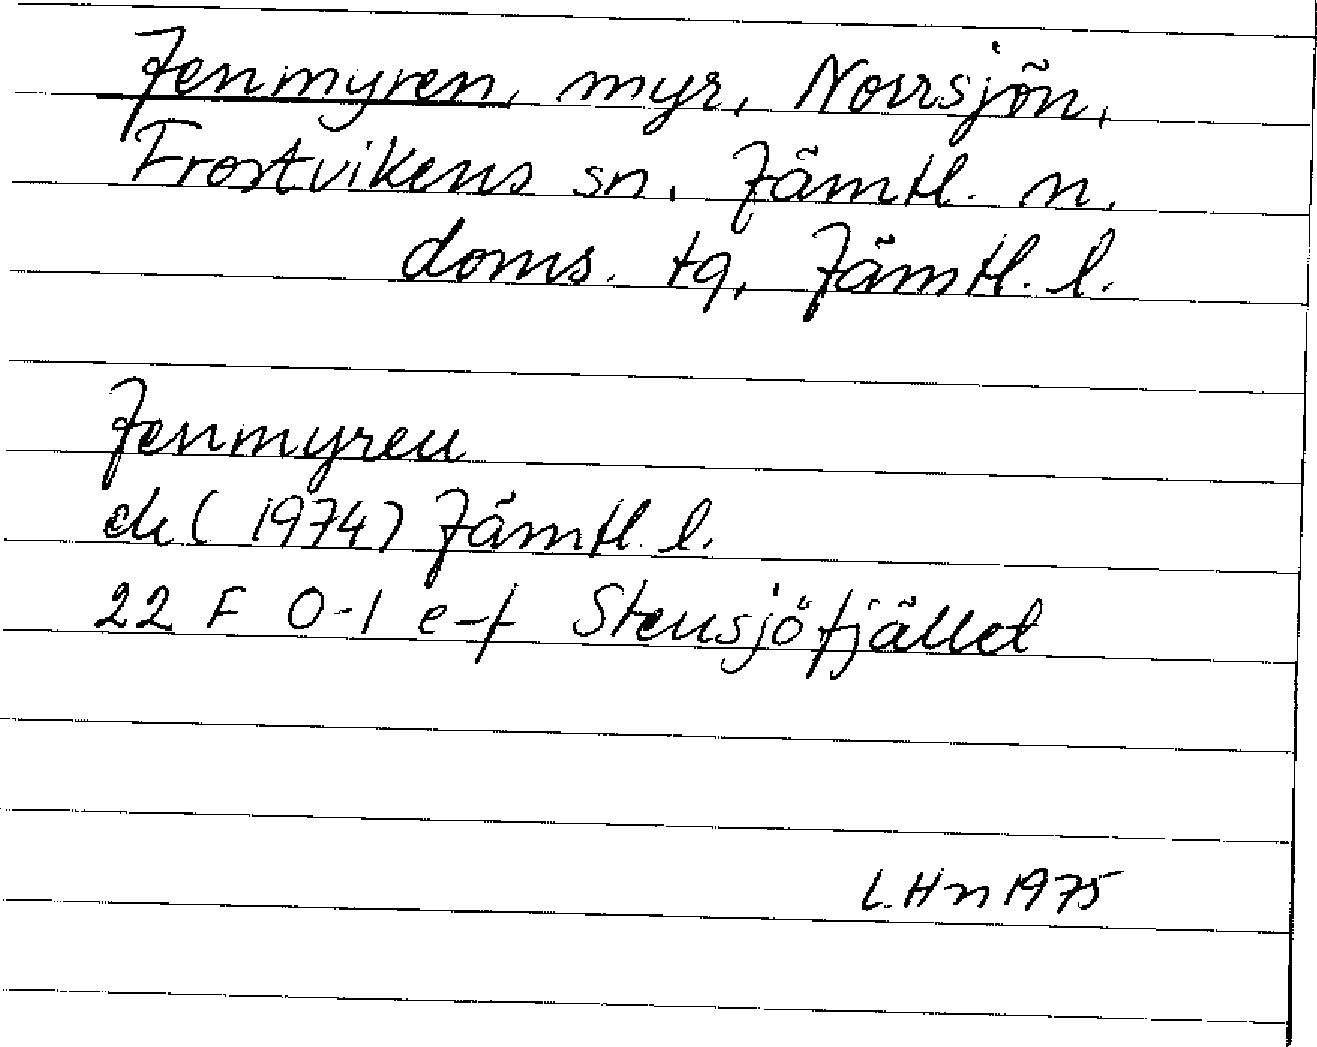 Jenmyren, myr, Norrsjön,
Frostvikens sn, Jämtl. n.
doms. tg, Jämtl. l.
Jenmyren
ek (1974) Jämtl. l.
22 F 0-1 e-f Stensjöfjället
L.Hn 1975